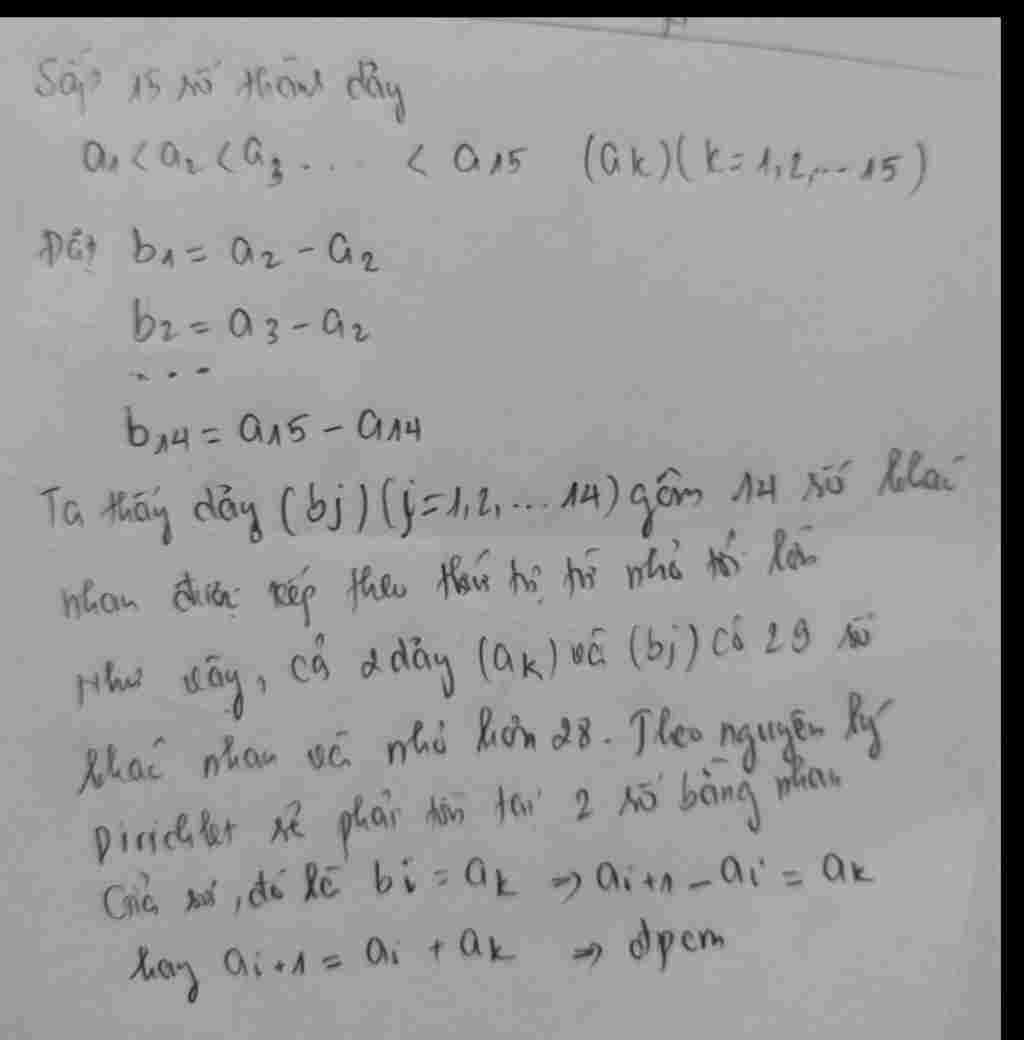 Sắp 15 số thành dãy
a1 < a2 < a3 ... < a15 (ak)(k=1,2,...15)
Đặt b1 = a2 - a2
b2 = a3 - a2
...
b14 = a15 - a14
Ta thấy dãy (bj)(j=1,2,...14) gồm 14 số khác
nhau được xếp theo thứ tự từ nhỏ tới lớn
Như vậy, cả 2 dãy (ak) và (bj) có 29 số
khác nhau và nhỏ hơn 28. Theo nguyên lý
Dirichlet sẽ phải tồn tại 2 số bằng nhau
Giả sử, đó là bi = ak => ai+1 - ai = ak
hay ai+1 = ai + ak => đpcm